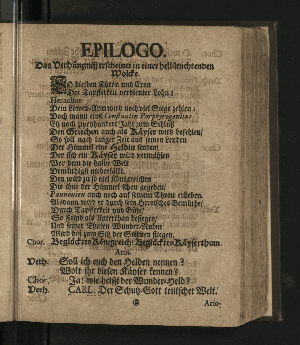 EPILOGO.
Das Verhängniß erscheinet in einer hellleuchtenden
Wolcke.
So bleiben Thron und Cron
Der Tapfferkeit verdienter Lohn!
Heraclius
Dein Löwen-Arm wird noch viel Siege zehlen;
Doch wann einst Constantin Porphyrogenitus
Den Griechen auch als Käyser wird befehlen/
So soll nach langer Zeit aus jenen
Der Himmel eine Heldin senden
Der sich ein Käyser wird vermählen
Vor dem die halbe Welt
Demüthigst niederfällt.
Den wird zu so viel Königreichen
Die ihm der Himmel schon gegeben/
Pannonien auch noch auf seinen Thron erheben.
Alsdann wird er durch sein Heroisches Gemüthe/
Durch Tapferkeit und Güte/
So Feind als Unterthan besiegen/
Und seiner Thaten Wunder-Ruhm
Wird biß zum Sitz der Götter fliegen.
Chor. Beglücktes Königreich! Beglücktes Käyserthum.
Aria.
Verh. Soll ich euch den Helden nennen?
Wolt ihr diesen Käyser kennen?
Chor. Ja! wie heißt der Wunder-Held?
Verh. CARL: Der Schutz-Gott teutscher Welt.
Ario-